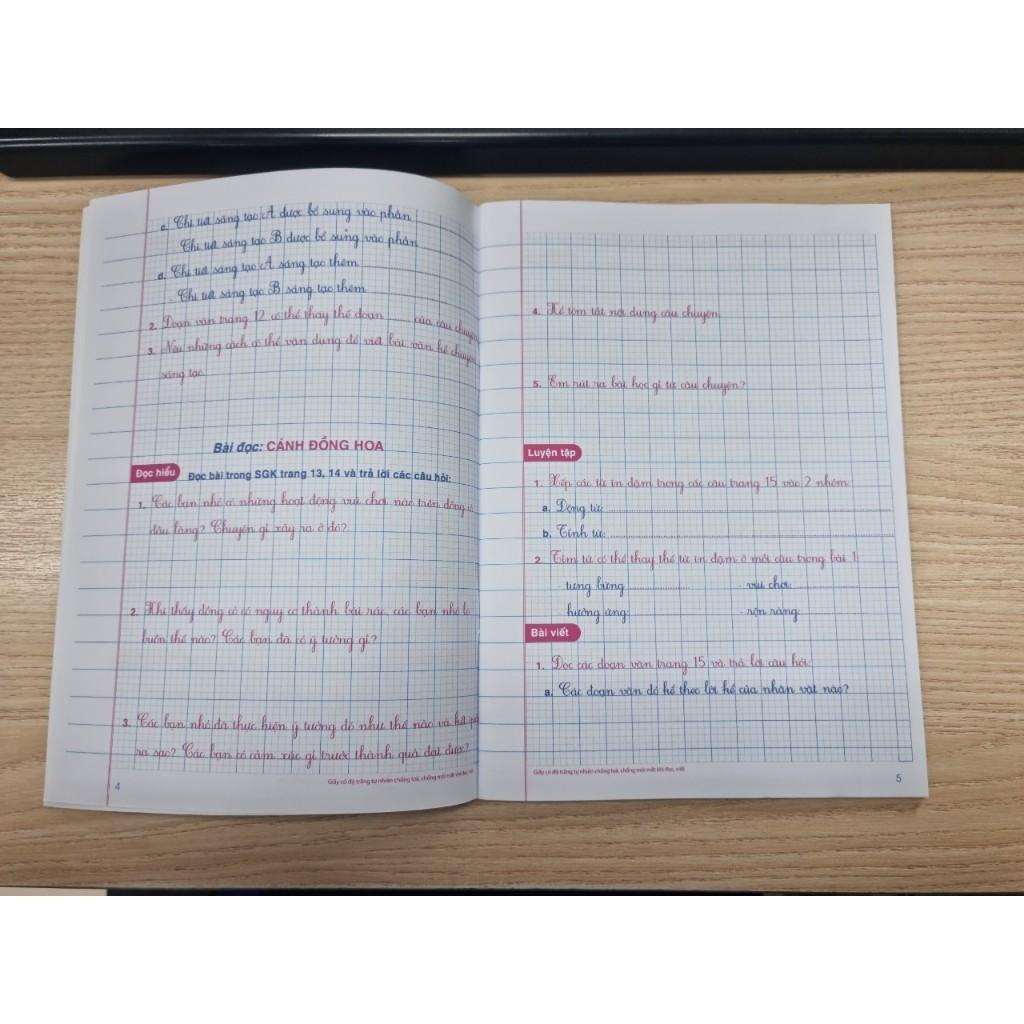 c. Chi tiết sáng tạo A được bổ sung vào phần
Chi tiết sáng tạo B được bổ sung vào phần
d. Chi tiết sáng tạo A sáng tạo thêm
Chi tiết sáng tạo B sáng tạo thêm
2. Đoạn văn trang 12 có thể thay thế đoạn ...... của câu chuyện
3. Nêu những cách có thể vận dụng để viết bài văn kể chuyện
sáng tạo.
Bài đọc: CÁNH ĐỒNG HOA
Đọc hiểu Đọc bài trong SGK trang 13, 14 và trả lời các câu hỏi:
1. Các bạn nhỏ có những hoạt động vui chơi nào trên đồng cỏ
đầu làng? Chuyện gì xảy ra ở đó?
2. Khi thấy đồng cỏ có nguy cơ thành bãi rác, các bạn nhỏ lo
buồn thế nào? Các bạn đã có ý tưởng gì?
3. Các bạn nhỏ đã thực hiện ý tưởng đó như thế nào và kết
ra sao? Các bạn có cảm xúc gì trước thành quả đạt được?
Giấy có độ trắng tự nhiên chống loá, chống mỏi mắt khi đọc, viết
4
4. Kể tóm tắt nội dung câu chuyện.
5. Em rút ra bài học gì từ câu chuyện?
Luyện tập
1. Xếp các từ in đậm trong các câu trang 15 vào 2 nhóm:
a. Động từ:
b. Tính từ:
2. Tìm từ có thể thay thế từ in đậm ở mỗi câu trong bài 1:
- tưng bừng: - vui chơi:
- hưởng ứng: - rộn ràng:
Bài viết
1. Đọc các đoạn văn trang 15 và trả lời câu hỏi:
a. Các đoạn văn đó kể theo lời kể của nhân vật nào?
Giấy có độ trắng tự nhiên chống loá, chống mỏi mắt khi đọc, viết
5